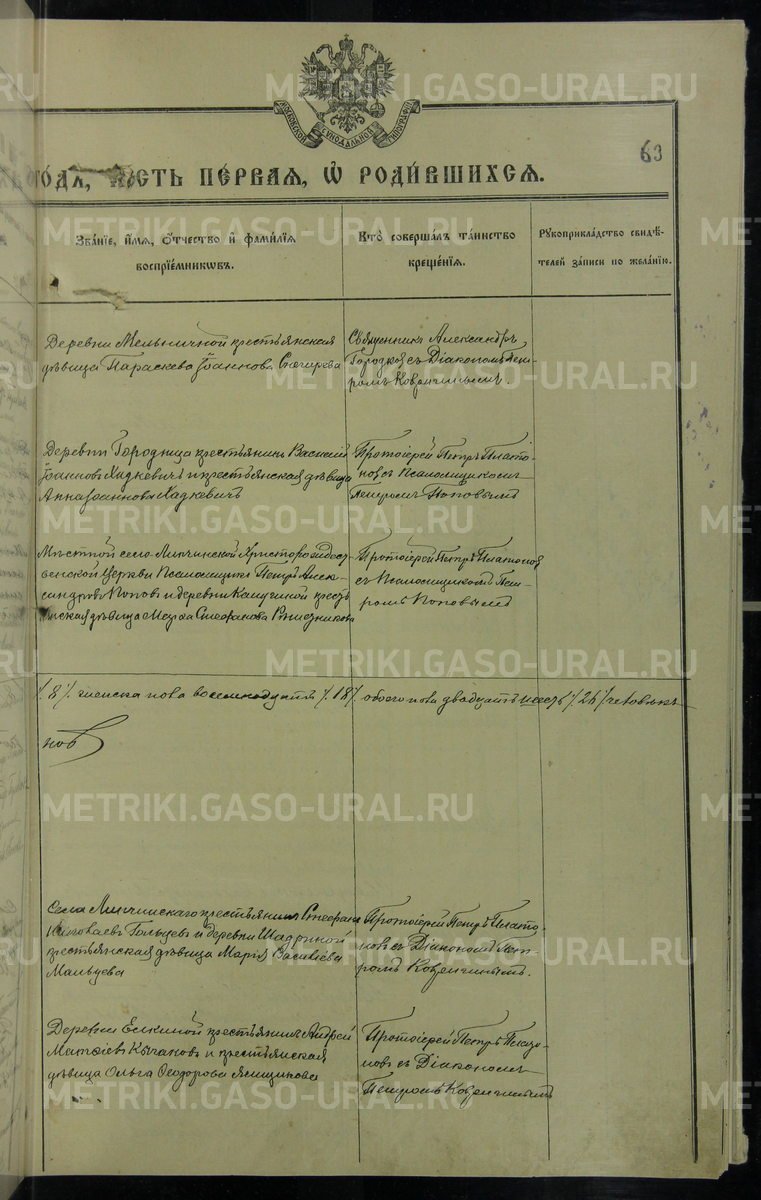 МОСКОВСКОЙ СѴНОДАЛЬНОЙ ТИПОГРАФІИ
63
ГО́ДА, ЧА́СТЬ ПЕ́РВАЯ, Ѡ҆ РОДИ́ВШИХСЯ.
Зва́ніе, и҆́мя, ѻ҆́тчество и҆ фами́лія
воспріе́мниковъ.
Кто̀ соверша́лъ та́инство
креще́нія.
Рꙋкоприкла́дство свидѣ́-
телей за́писи по жела́нію.
Деревни Мельничной крестьянская
дѣвица Параскева Іоаннова Снегирева
Священникъ Александръ
съ Діакономъ Пет-
ромъ Ковригинымъ.
Деревни Городища крестьянинъ Василій
Іоанновъ Хадкевичъ и крестьянская дѣвица
Анна Іоаннова Хадкевичъ
Протоіерей Петръ Плато-
новъ съ Псаломщикомъ
Петромъ Поповымъ
Мѣстной села Липчинской Христорождест-
венской Церкви Псаломщикъ Петръ Алек-
сандровъ Поповъ и деревни крест
янская дѣвица Стефанова
Протоіерей Петръ Платоновъ
съ Псаломщикомъ Пет-
ромъ Поповымъ
/. 8 /. женска пола восемнодцать /. 18 /. обоего пола двадцать шесть /. 26 /. человѣкъ
новъ
Села Липчинскаго крестьянинъ Стефанъ
Николаевъ Гольцевъ и деревни Шадриной
крестьянская дѣвица Марія Василіева
Мальцева
Протоіерей Петръ Плато-
новъ съ Діакономъ Пет-
ромъ Ковригинымъ.
Деревни Елкиной крестьянинъ Андрей
Матѳіевъ и крестьянская
дѣвица Ольга Ѳеодорова Ямщикова
Протоіерей Петръ Плато-
новъ съ Діакономъ
Петромъ Ковригинымъ
METRIKI.GASO-URAL.RU